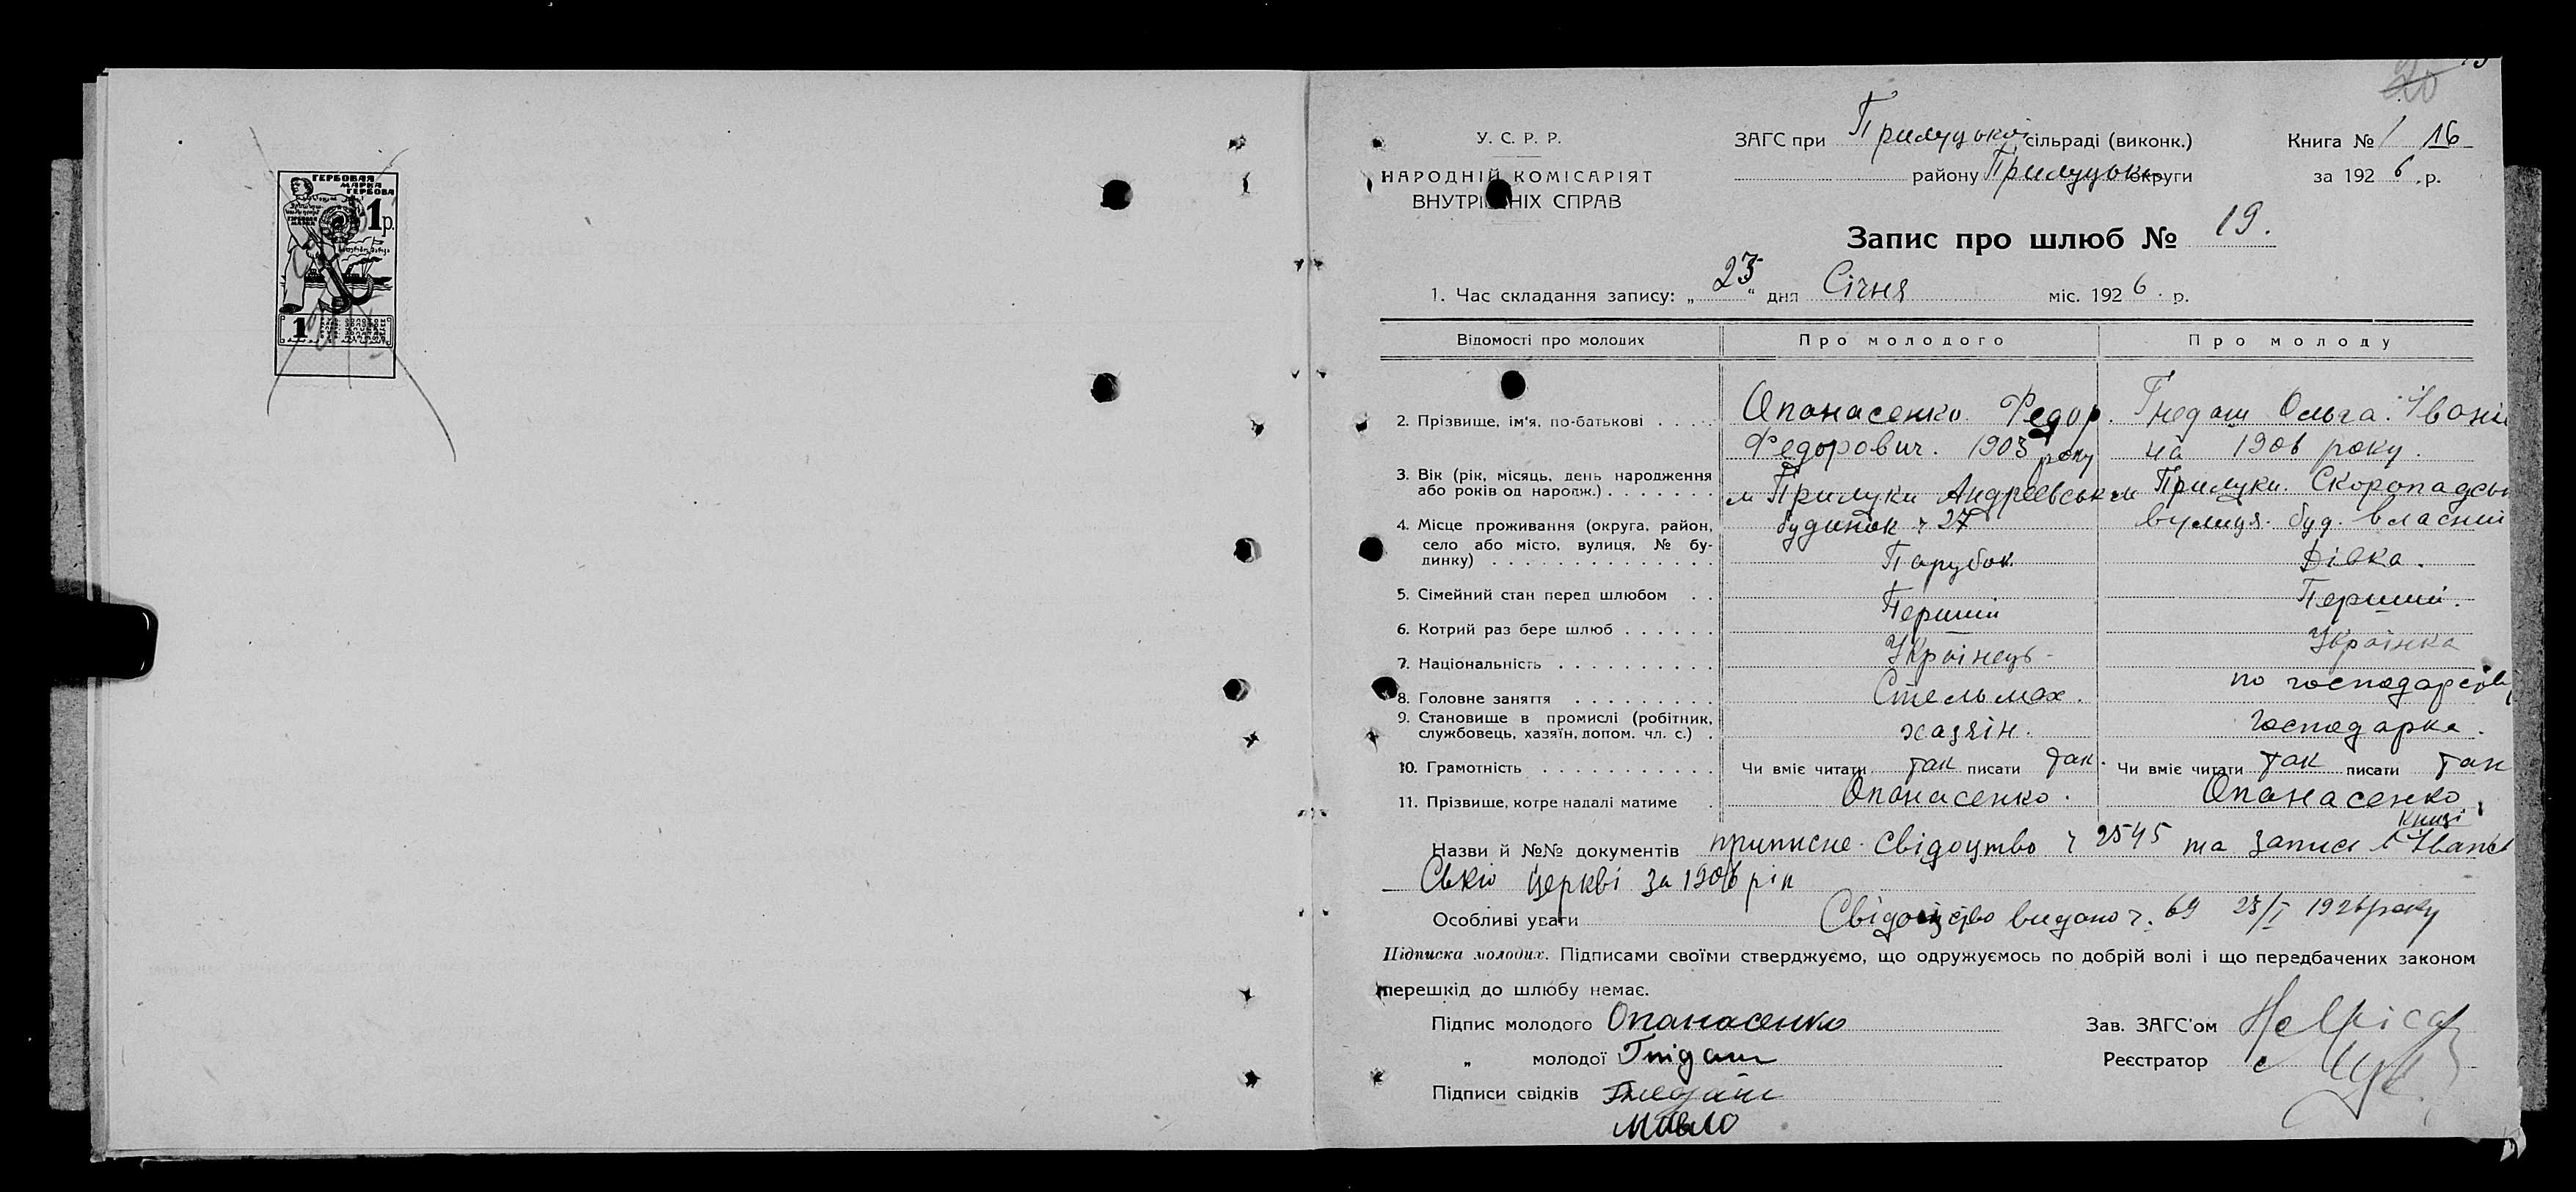 ГЕРБОВАЯ
МАРКА
ГЕРБОВА
1 р.
1
20
У. С. Р. Р.
НАРОДНІЙ КОМІСАРІЯТ
ВНУТРІШНІХ СПРАВ
ЗАГС при Прилуцькой сільраді (виконк.)
району Прилуцько округи
Книга № 1 16
за 1926 .р.
Запис про шлюб № 19.
1. Час складання запису: „23“ дня Січня міс. 1926. р.
Відомості про молодих Про молодого Про молоду
2. Прізвище, ім'я, по-батькові Опанасенко Федор. Федорович. 1903 року
Гнедаш Ольга Івані на 1906 року.
3. Вік (рік, місяць, день народження
або років од народж.)
м Прилуки Андреевськ
Прилуки. Скоропадсь
4. Місце проживання (округа, район,
село або місто, вулиця, № бу-
динку)
будинок ч 27
вулиця. буд. власний
Парубок Дівка.
5. Сімейний стан перед шлюбом
Перший Перший.
6. Котрий раз бере шлюб
Українець Українка
7. Національність
Стельмах. по господарству
8. Головне заняття
9. Становище в промислі (робітник,
службовець, хазяїн, допом. чл. с.)
хазяін. Господарка.
10. Грамотність Чи вміє читати так писати так. Чи вміє читати так писати так
11. Прізвище, котре надалі матиме Опанасенко. Опанасенко.
книзі
Назви й №№ документів приписне свідоцтво ч 2545 та запис в Іванів
ськіо церкві за 1906 рік
Особливі уваги Свідоцтво видано ч. 69 23/I 1926 року
Підписка молодих. Підписами своїми стверджуємо, що одружуємось по добрій волі і що передбачених законом
перешкід до шлюбу немає.
Підпис молодого Опанасенко Зав. ЗАГС'ом
„ молодої Гнідаш Реєстратор
Підписи свідків Гнедаш